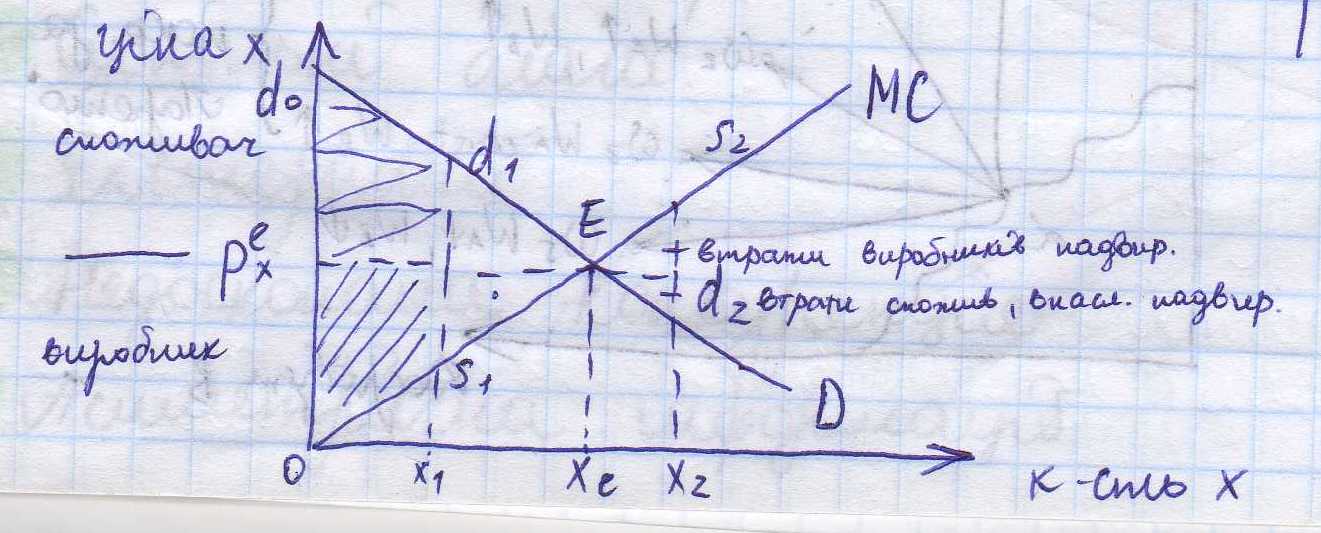 ціна x
d₀
споживач
d₁
S₂
MC
E
Pₓᵉ
+ втрати виробників надвир.
d₂ втрати спожив, внасл. надвир.
виробник
S₁
D
0
x₁
xₑ
x₂
к-сть x